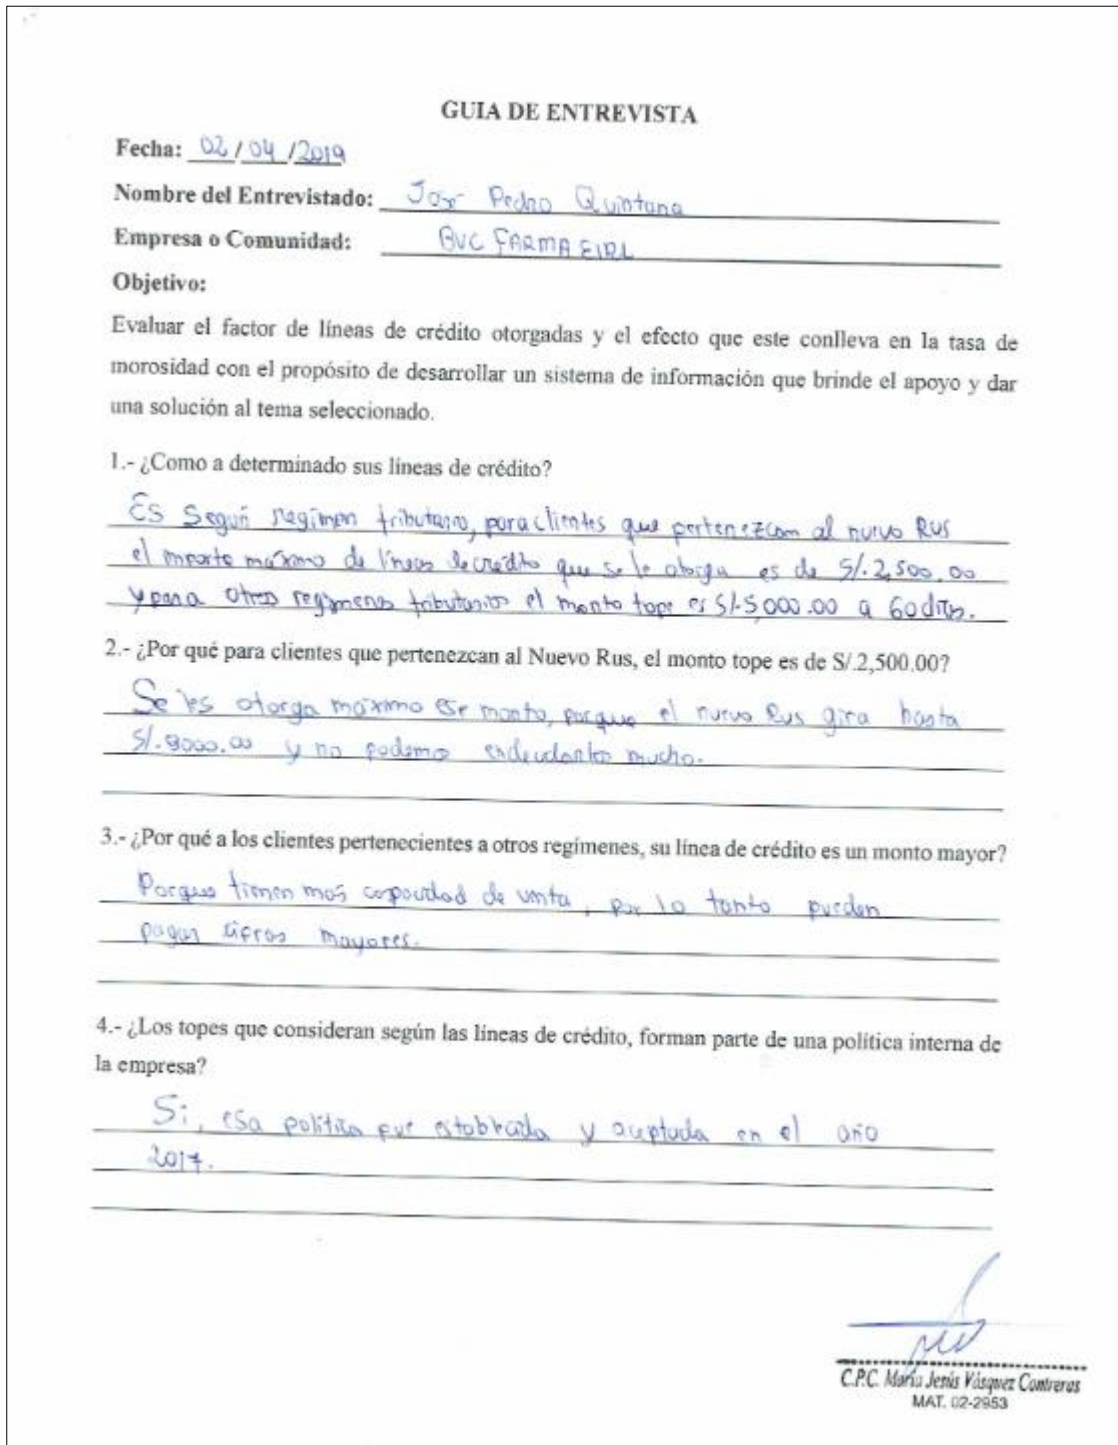 GUIA DE ENTREVISTA
Fecha: 02/04/2019
Nombre del Entrevistado: José Pedro Quintana
Empresa o Comunidad: BVC FARMA EIRL
Objetivo:
Evaluar el factor de líneas de crédito otorgadas y el efecto que este conlleva en la tasa de
morosidad con el propósito de desarrollar un sistema de información que brinde el apoyo y dar
una solución al tema seleccionado.
1.- ¿Como a determinado sus líneas de crédito?
ES Según regimen tributario, para clientes que pertenezcam al nuevo RUS
el importe máximo de líneas de crédito que se le otorga es de S/. 2,500.00
y para otros regimenes tributarios el monto tope es S/. 5,000.00 a 60 días.
2.- ¿Por qué para clientes que pertenezcan al Nuevo Rus, el monto tope es de S/.2,500.00?
Se les otorga máximo ese monto, porque el nuevo Rus gira hasta
S/. 8000.00 y no podemo endeudarlos mucho.
3.- ¿Por qué a los clientes pertenecientes a otros regímenes, su línea de crédito es un monto mayor?
Porque tienen más capacidad de venta, por lo tanto pueden
pagar cifras mayores.
4.- ¿Los topes que consideran según las líneas de crédito, forman parte de una política interna de
la empresa?
Si, esa política fue establecida y aceptada en el año
2017.
C.P.C. María Jesús Vásquez Contreras
MAT. 02-2953